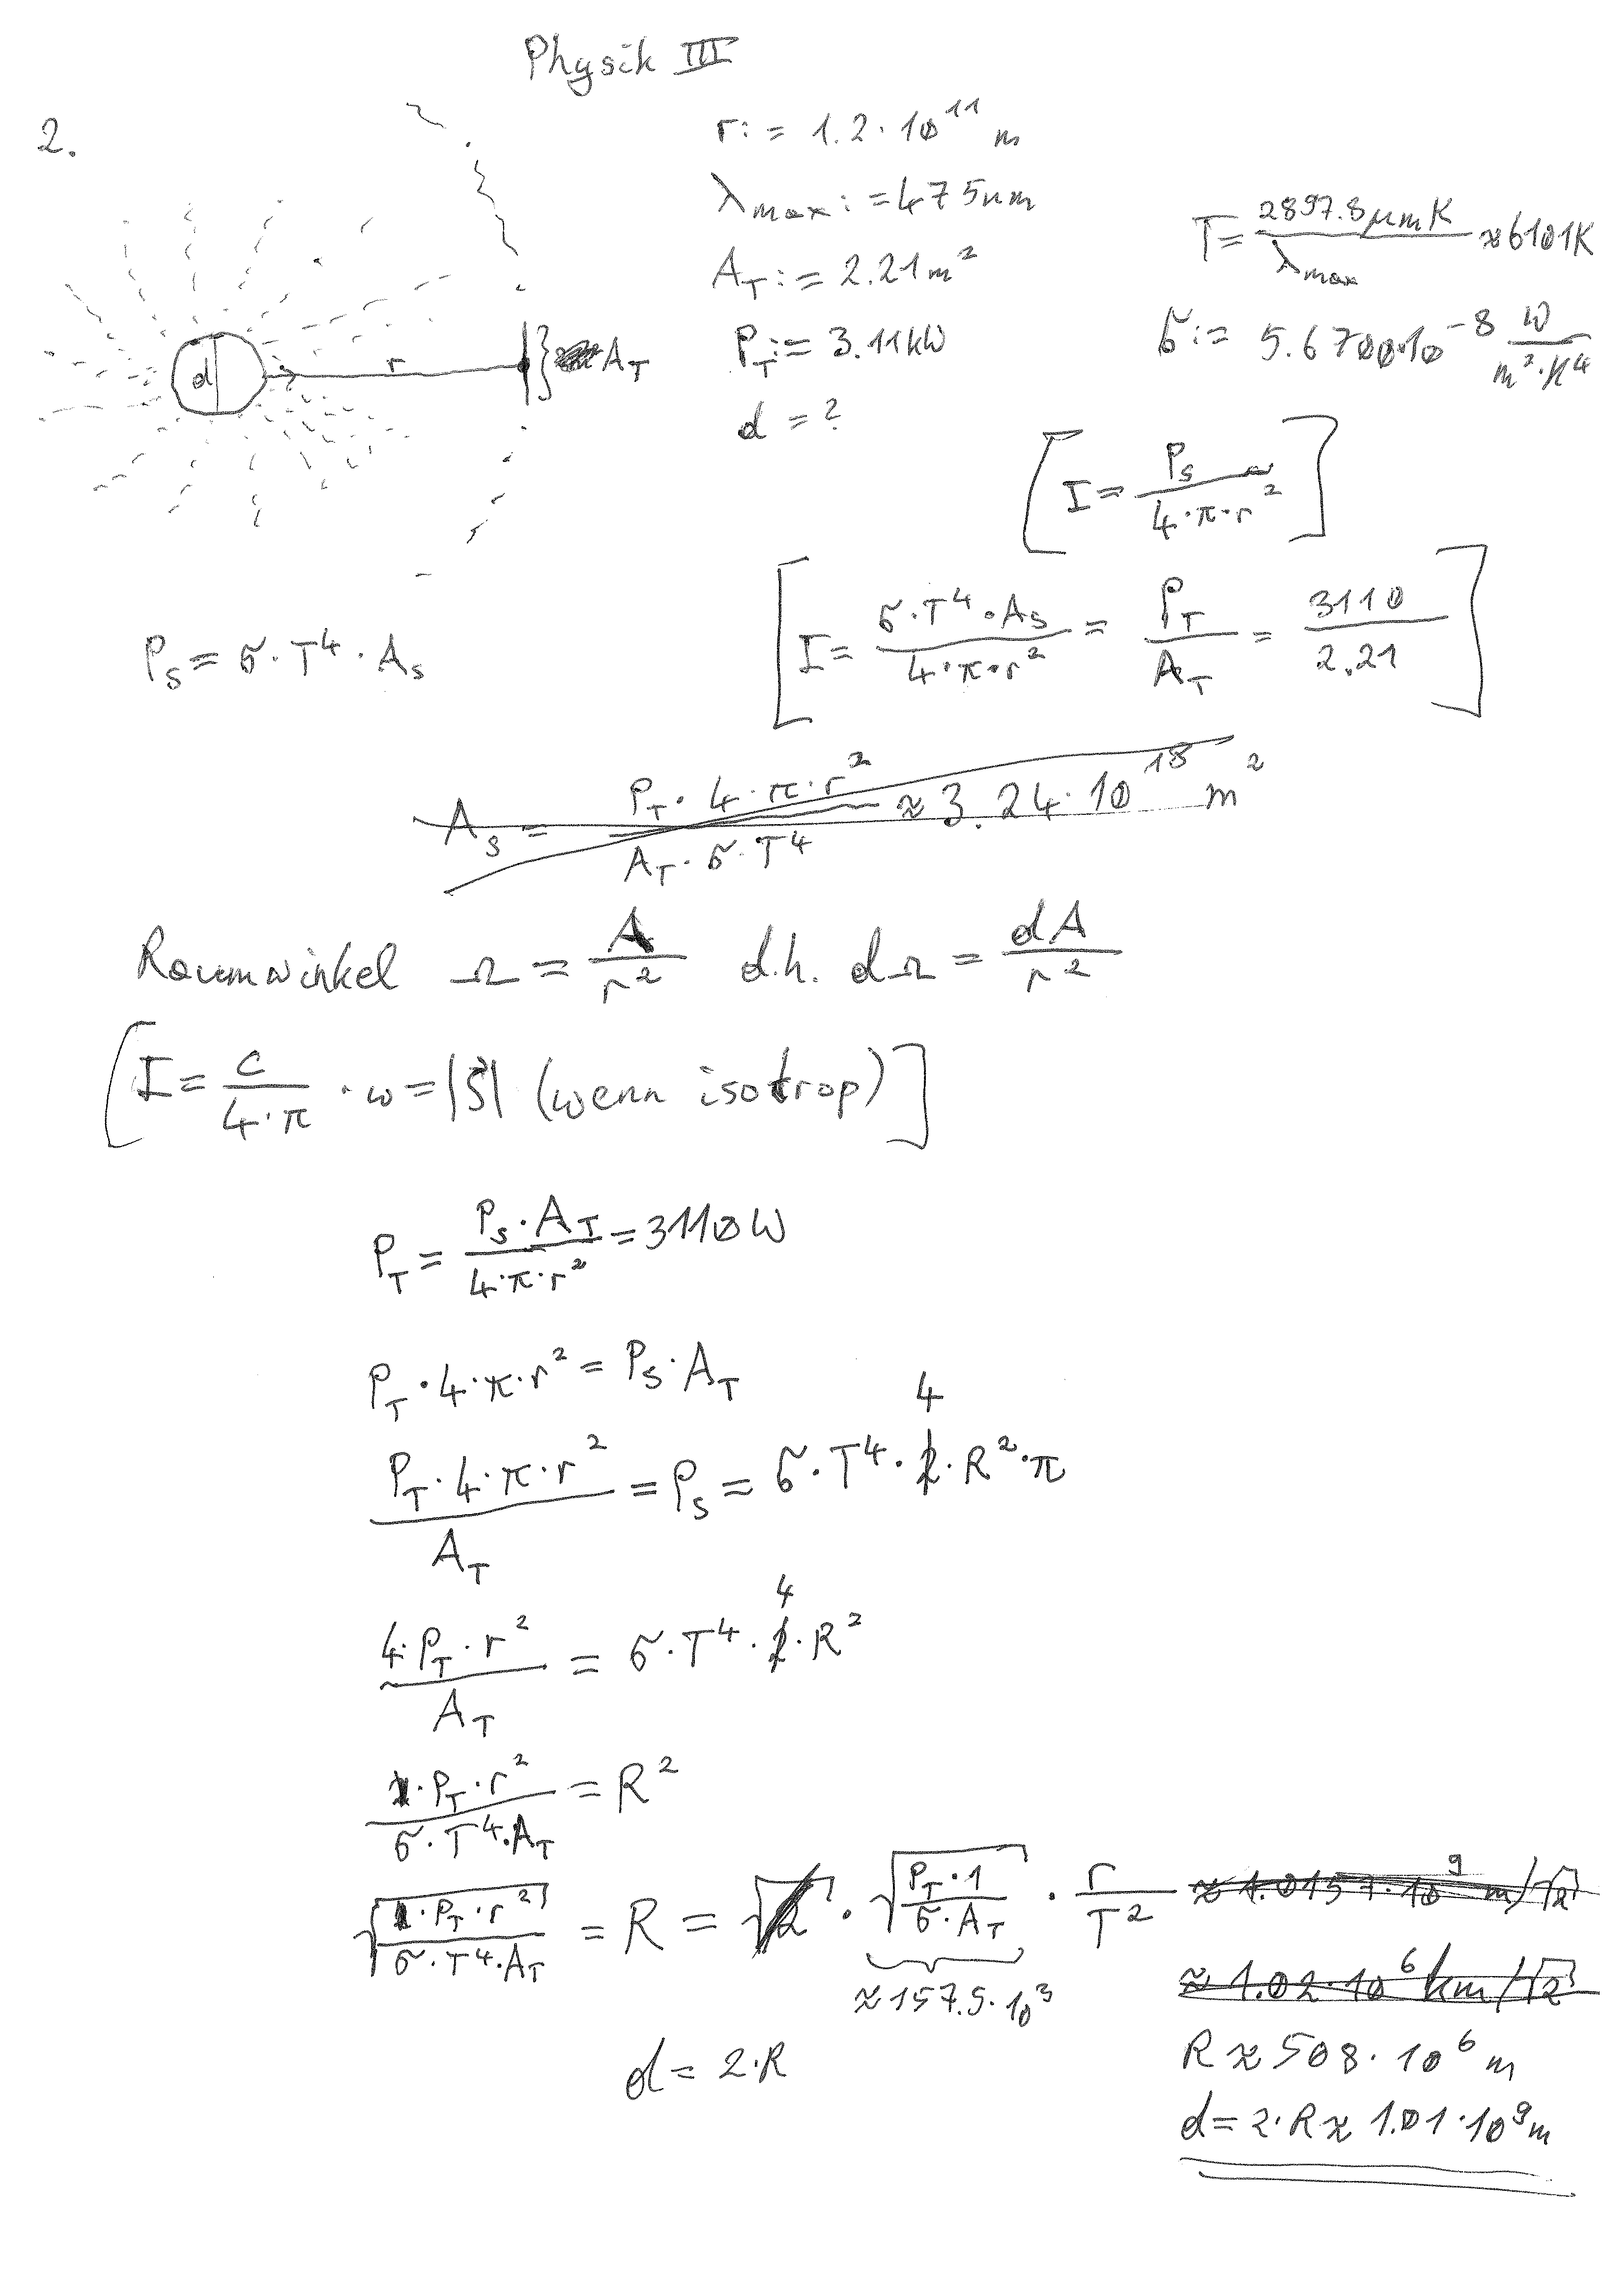 Physik III
2.
r := 1.2 · 10^11 m
λ_max := 475nm
T = 2897.8μmK / λ_max ≈ 6101K
A_T := 2.21m²
σ := 5.6700·10^-8 W / m²·K⁴
d
r
A_T
P_T := 3.11kW
d = ?
[I = P_s / 4·π·r²]
P_s = σ·T⁴·A_s
[I = σ·T⁴·A_s / 4·π·r² = P_T / A_T = 3110 / 2.21]
A_s = P_T · 4·π·r² / A_T·σ·T⁴ ≈ 3.24·10^18 m²
Raumwinkel Ω = A / r² d.h. dΩ = dA / r²
[I = c / 4·π · w = |S⃗| (wenn isotrop)]
P_T = P_s·A_T / 4·π·r² = 3110W
P_T·4·π·r² = P_s·A_T
4
P_T·4·π·r² / A_T = P_s = σ·T⁴·2·R²·π
4
4·P_T·r² / A_T = σ·T⁴·2·R²
1·P_T·r² / σ·T⁴·A_T = R²
√(1·P_T·r² / σ·T⁴·A_T) = R = √2 · √(P_T·1 / σ·A_T) · r / T² ≈ 1.0157·10^9 m/√2
≈ 157.5·10³
≈ 1.02·10^6 km/√2
d = 2·R
R ≈ 508·10^6 m
d = 2·R ≈ 1.01·10^9 m